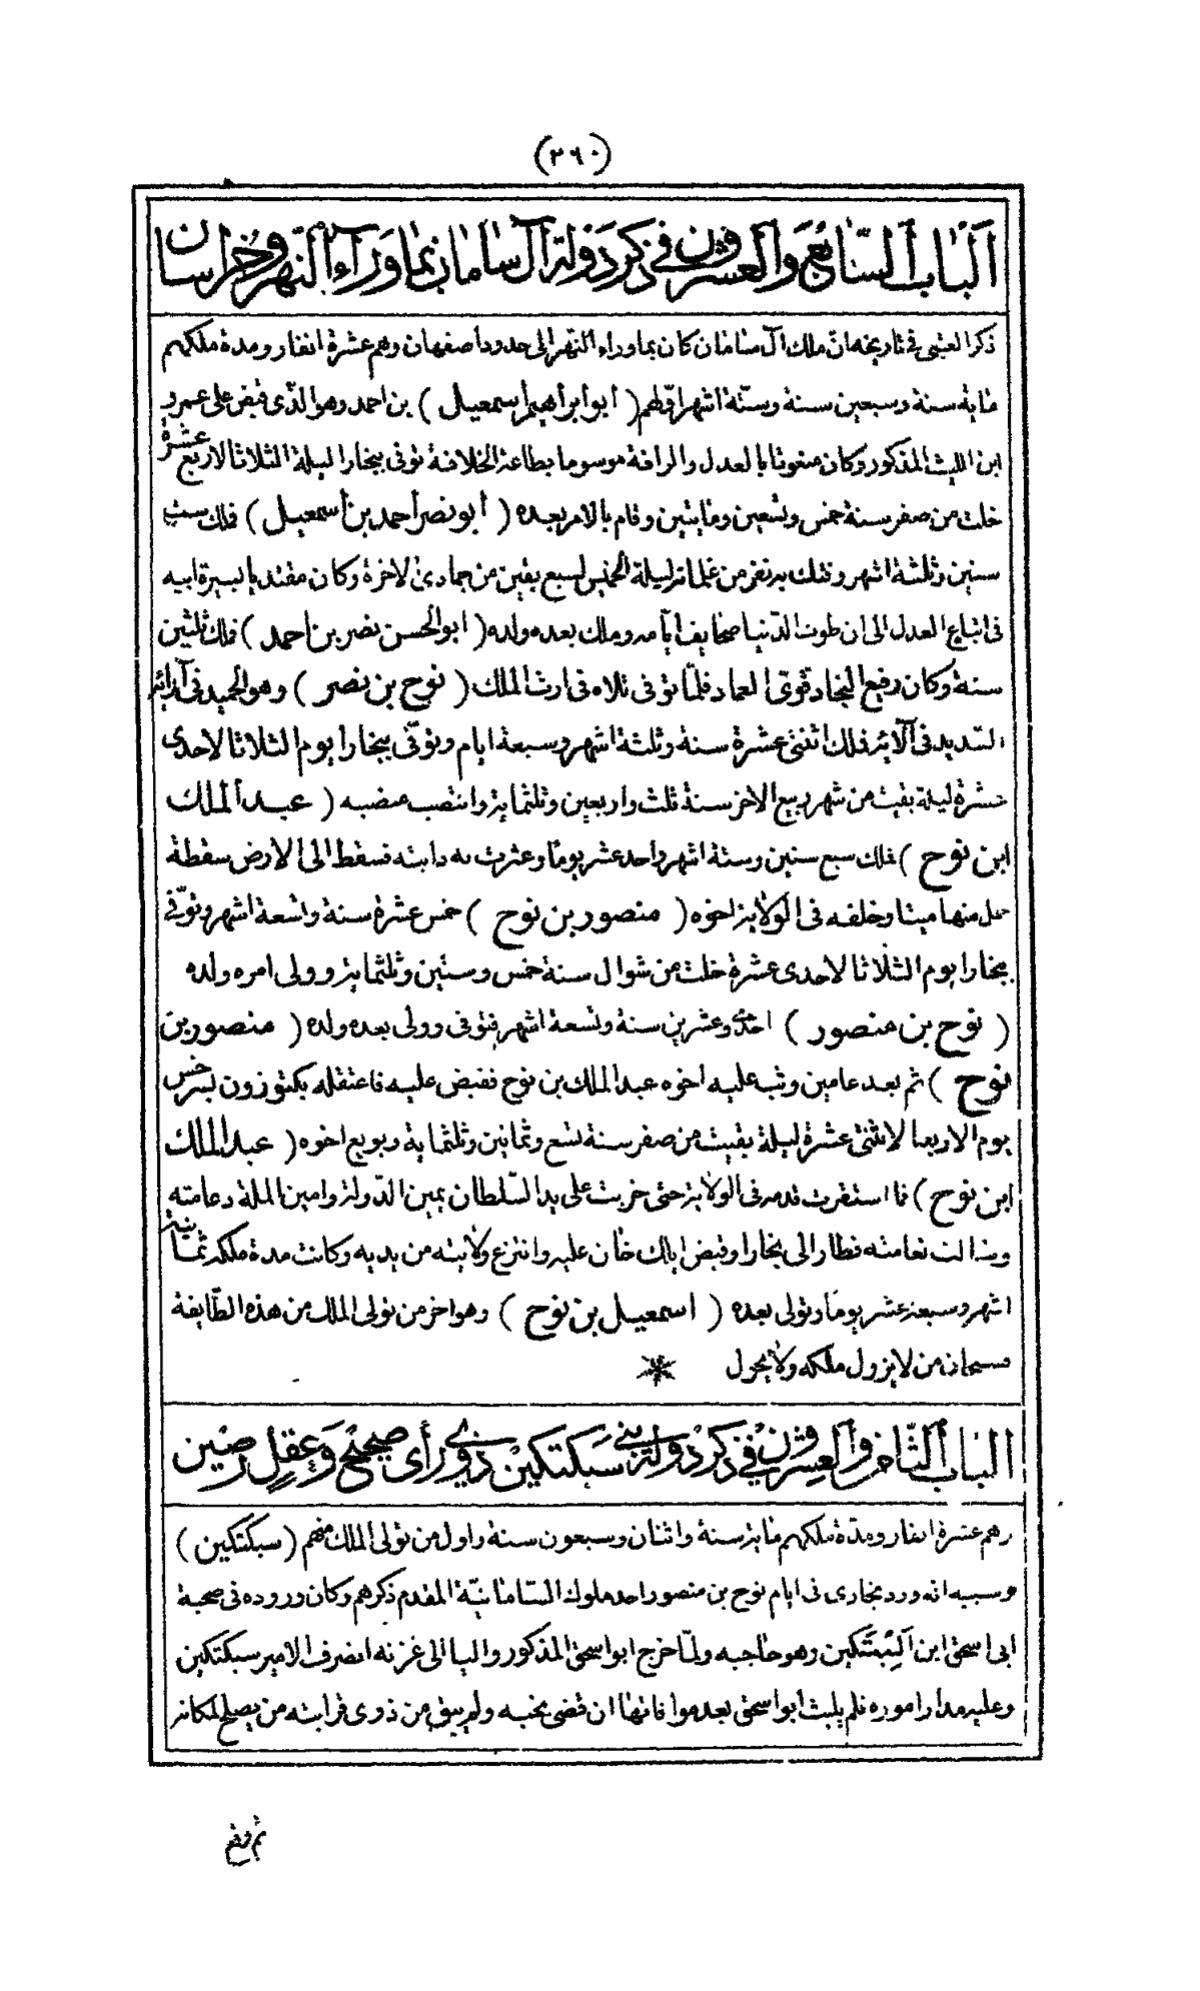 (٢٦٠)
الباب السابع والعشرون في ذكر دولة آل سامان بما وراء النهر وخراسان
ذكر العتبى في تاريخه ان ملك آل سامان كان بما وراء النهر الى حدود اصفهان وهم عشرة انفار ومدة ملكهم
ماية سنة وسبعين سنة وستة اشهر اولهم ( أبو ابراهيم اسمعيل ) بن احمد وهو الذى قبض على عمرو
ابن الليث المذكور وكان منعوتا بالعدل والرافة موسوما بطاعة الخلافة توفى ببخارا ليلة الثلاثا لاربع عشرة
خلت من صفر سنة خمس وتسعين ومايتين وقام بالامر بعده ( أبو نصر أحمد بن أسمعيل ) فملك ست
سنين وثلثة اشهر وفتك به نفر من غلمانه ليلة الخميس لسبع بقين من جمادى الاخرة وكان مقتديا بسيرة ابيه
فى اتباع العدل الى ان طوت الدنيا صحايف ايامه وملك بعده ولده ( ابو الحسن نصر بن احمد ) فملك ثلثين
سنة وكان رفيع النجاد قوى العماد فلما توفى تلاه فى ارث الملك ( نوح بن نصر ) وهو الحميد فى آرائه
السديد فى آلائه فملك اثنتى عشرة سنة وثلثة اشهر وسبعة ايام وتوفى ببخارا يوم الثلاثا لاحدى
عشرة ليلة بقيت من شهر ربيع الاخر سنة ثلث واربعين وثلثماية وانتصب منصبه ( عبد الملك
ابن نوح ) فملك سبع سنين وستة اشهر واحد عشر يوما وعثرت به دابته فسقط الى الارض سقطة
حمل منها ميتا وخلفه فى الولاية اخوه ( منصور بن نوح ) خمس عشرة سنة وتسعة اشهر وتوفى
ببخارا يوم الثلاثا لاحدى عشرة خلت من شوال سنة خمس وستين وثلثماية وولى امره ولده
( نوح بن منصور ) احدى وعشرين سنة وتسعة اشهر فتوفى وولى بعده ولده ( منصور بن
نوح ) ثم بعد عامين وثب عليه اخوه عبد الملك بن نوح فقبض عليه فاعتقله بكتوزون بسرخس
يوم الاربعا لاثنتى عشرة ليلة بقيت من صفر سنة تسع وثمانين وثلثماية وبويع اخوه ( عبد الملك
ابن نوح ) فما استقرت قدمه فى الولاية حتى خربت على يد السلطان يمين الدولة وامين الملة دعامته
وشالت نعامته فطار الى بخارا وقبض ايلك خان عليه وانتزع ولايته من يديه وكانت مدة ملكه ثمانية
اشهر وسبعة عشر يوما وتولى بعده ( اسمعيل بن نوح ) وهو اخر من تولى الملك من هذه الطايفة
فسبحان من لا يزول ملكه ولا يحول
الباب الثامن والعشرون في ذكر دولة بني سبكتكين ذوي رأى صحيح وعقل رصين
وهم عشرة انفار ومدة ملكهم ماية سنة واثنان وسبعون سنة واول من تولى الملك منهم ( سبكتكين )
وسببه انه ورد بخارى فى ايام نوح بن منصور احد ملوك السامانية المقدم ذكرهم وكان وروده فى صحبة
ابى اسحق ابن البتكين وهو حاجبه ولما خرج ابو اسحق المذكور واليا الى غزنه انصرف الامير سبكتكين
وعليه مدار اموره فلم يلبث أبو اسحق بعد موافاتها ان قضى نحبه ولم يبق من ذوى قرابته من يصلح لمكانه
ثم وقع